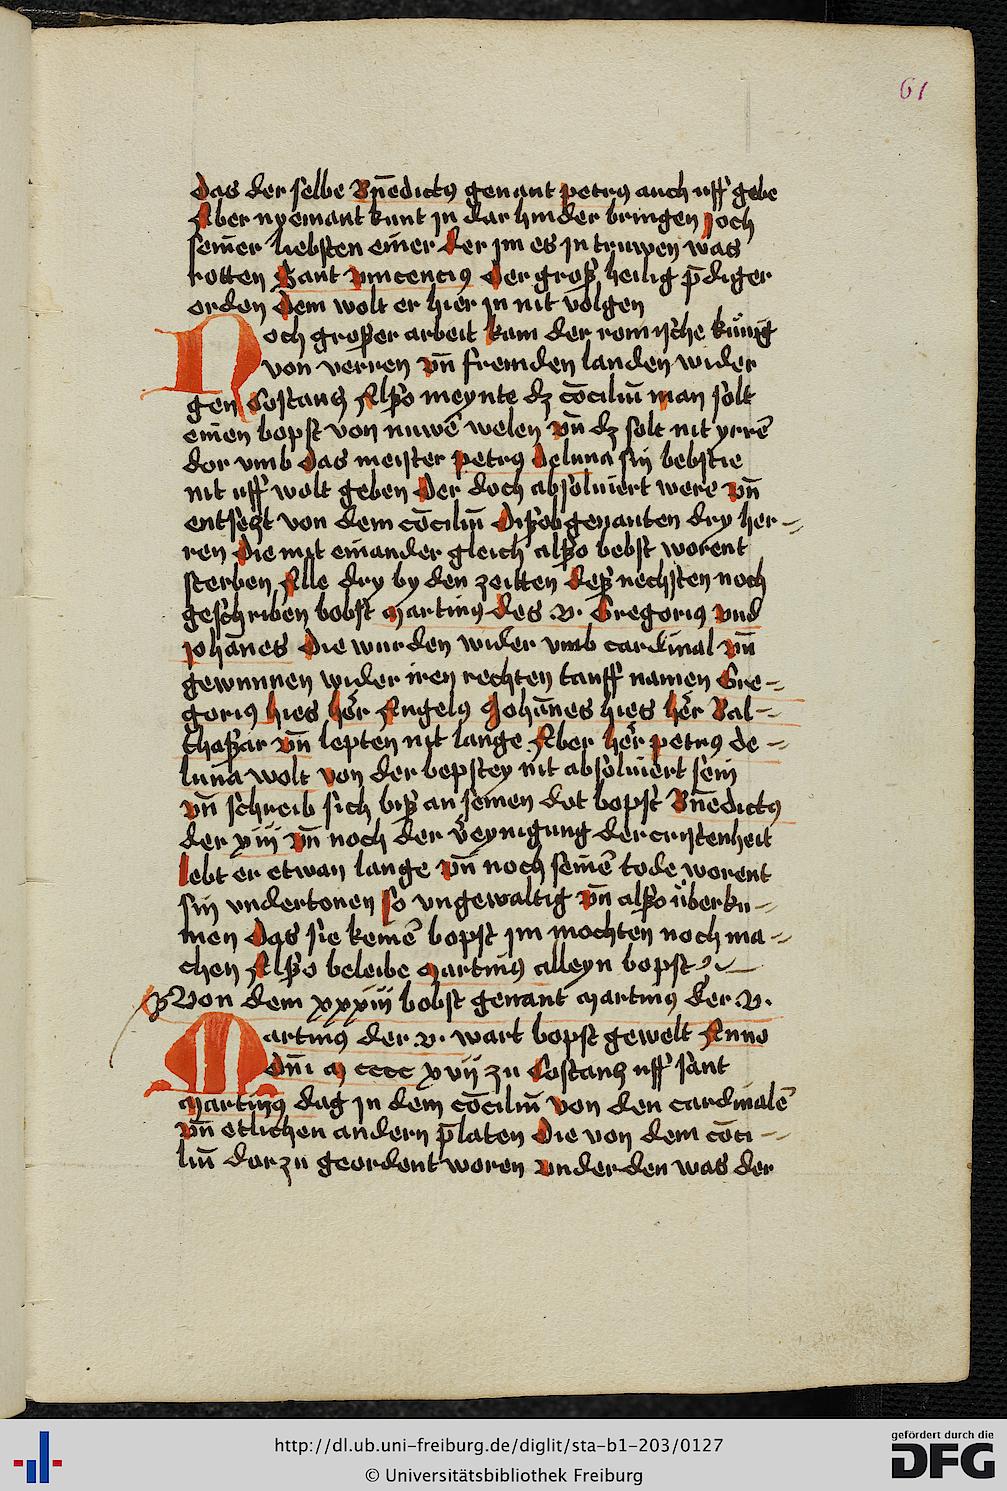 61
das der selbe Bn̄edictus genant petrus auch uff gebe
Aber nyemant kunt jn dar hinder bringen joch
seiner liebsten einer der jm es jn truwen was
rotten Sant vincencius der groß heilig p̄diger
orden dem wolt er hier jn nit volgen
Noch großer arbeit kam der romische kúnig
von verren vn̄ fremden landen wider
gen Costantz Alßo meynte dz cōciliū man solt
einen bopst von nuwē welen vn̄ dz solt nit yrrē
dor vmb das meister petrus deluna sin bebstie
nit uff wolt geben Der doch absoluiert were vn̄
entsetzt von dem cōciliū Dißobgenanten dry her-
ren Die mit einander gleich alßo bebst worent
sterben Alle dry by den zeitten deß nechsten noch
geschriben bobst martinus des .v. Gregorius vnd
johānes Die wurden wider vmb cardinal vn̄
gewunnen wider iren rechten tauff namen Gre-
gorius hies her Angelus Johānes hies her Bal-
thaßar vn̄ lepten nit lange Aber her petrus de-
luna wolt von der bepstey nit absoluiert sein
vn̄ schreib sich biß an seinen dot bopst Bn̄edictus
der xiii vn̄ noch der veynigung der cristenheit
lebt er etwan lange vn̄ noch seinē tode worent
sin vndertonen so vngewaltig vn̄ alßo überku-
men Das sie keinē bopst jm mochten noch ma-
chen Alßo beleibe martinus alleyn bopst
Von dem xxxiii bobst genant martinus der .v.
Martinus der .v. wart bopst gewelt Anno
dn̄i m cccc xvii zu Costantz uff sant
martinus dag jn dem cōciliū von den cardinalē
vn̄ etlichen andern p̄laten Die von dem cōci-
liū dor zu geordent woren vnder den was der
http://dl.ub.uni-freiburg.de/diglit/sta-b1-203/0127
© Universitätsbibliothek Freiburg
gefördert durch die
DFG